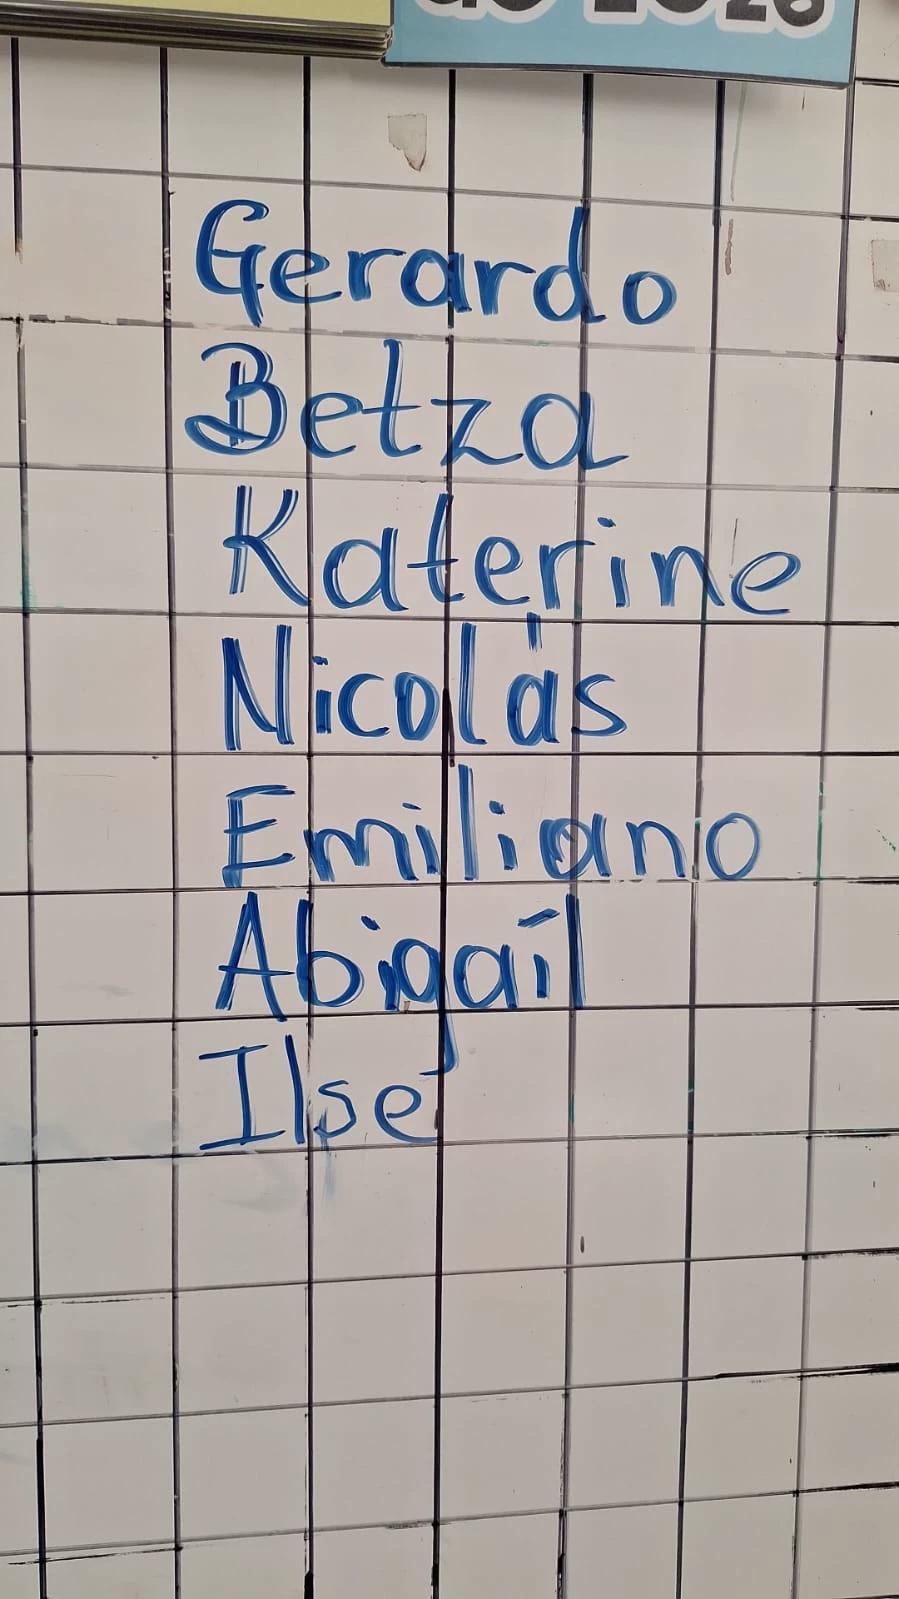 de 2026
Gerardo
Betza
Katerine
Nicolás
Emiliano
Abigaíl
Ilse